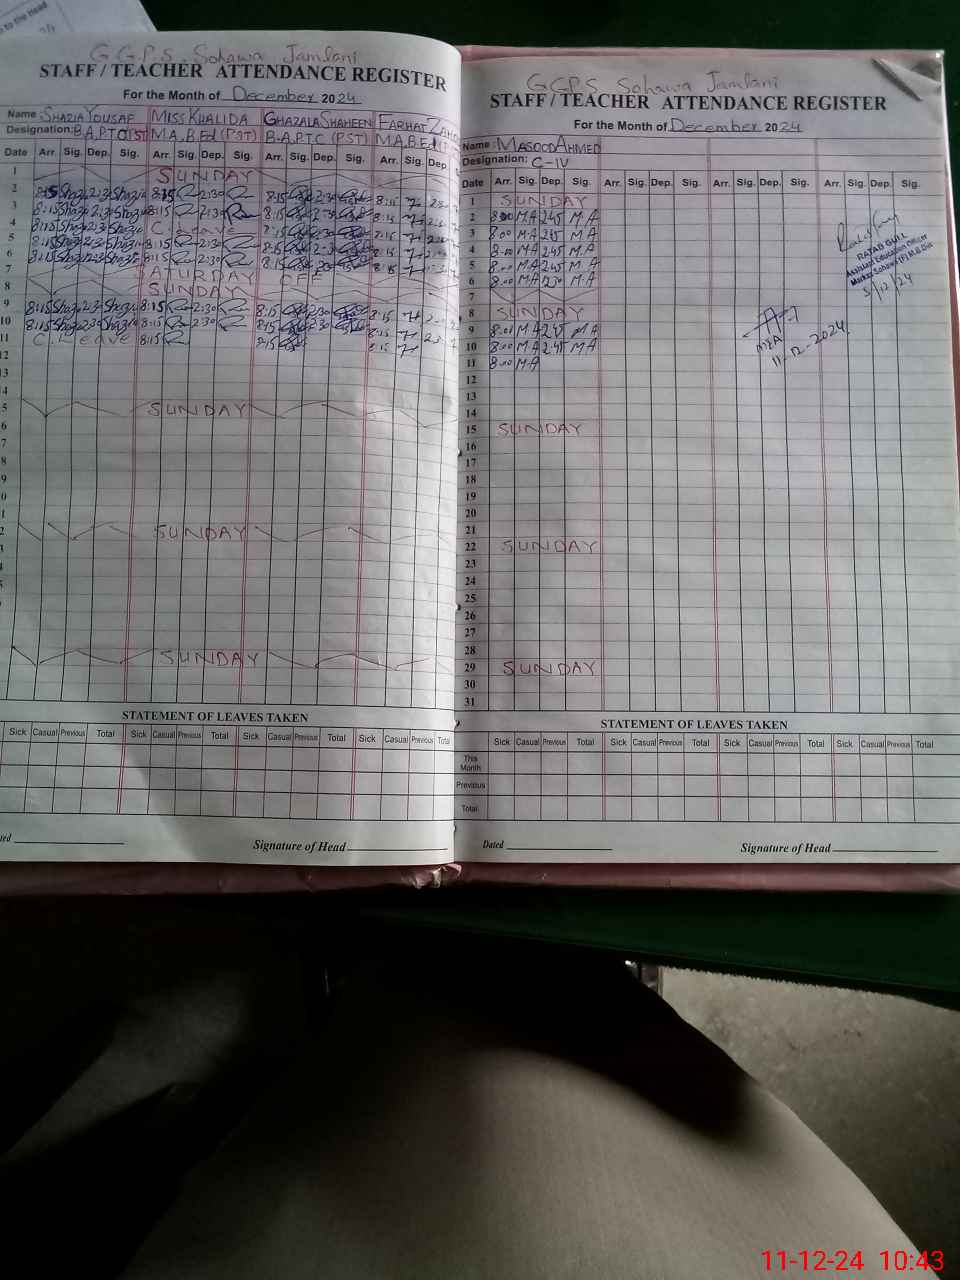 to the Head
G.G.P.S. Sohawa Jamlani
STAFF / TEACHER ATTENDANCE REGISTER
For the Month of December 2024
Name : SHAZIA YOUSAF MISS KHALIDA GHAZALA SHAHEEN FARHAT
Designation: B.A, PTC (PST) M.A, B.Ed (PST) B.A, P.T.C (PST) M.A, B.Ed
Date Arr. Sig. Dep. Sig. Arr. Sig. Dep. Sig. Arr. Sig. Dep. Sig. Arr. Sig. Dep.
1 SUNDAY
2 8:15 2:30 8:15 2:30 8:15 2:30 8:15
3 8:15 2:30 8:15 2:30 8:15 2:30 8:15
4 8:15 2:30 C. Leave 8:15 2:30 8:15
5 8:15 2:30 8:15 2:30 8:15 2:30 8:15
6 8:15 8:15 8:15 8:15
7 SATURDAY OFF
8 SUNDAY
9 8:15 2:30 8:15 2:30 8:15 2:30 8:15
10 8:15 2:30 8:15 2:30 8:15 2:30 8:15
11 C. Leave 8:15 8:15 8:15
12
13
14
5 SUNDAY
6
7
8
9
0
1
2 SUNDAY
3
SUNDAY
STATEMENT OF LEAVES TAKEN
Sick Casual Previous Total Sick Casual Previous Total Sick Casual Previous Total Sick Casual Previous Total
Signature of Head
GGPS Sohawa Jamlani
STAFF / TEACHER ATTENDANCE REGISTER
For the Month of December 2024
Name : MASOOD AHMED
Designation: C-IV
Date Arr. Sig. Dep. Sig. Arr. Sig. Dep. Sig. Arr. Sig. Dep. Sig. Arr. Sig. Dep. Sig.
1 SUNDAY
2 8:00 M A 2:45 M A
3 8:00 M A 2:45 M A
4 8:00 M A 2:45 M A
5 8:00 M A 2:45 M A
6 8:00 M A 12:30 M A
7
8 SUNDAY
9 8:00 M A 2:45 M A
10 8:00 M A 2:45 M A
11 8:00 M A
12
13
14
15 SUNDAY
16
17
18
19
20
21
22 SUNDAY
23
24
25
26
27
28
29 SUNDAY
30
31
RAJAB GULL
Assistant Education Officer
Markaz Sohawa (F) M.B.Din
5/12/24
MEA
11-12-2024
STATEMENT OF LEAVES TAKEN
Sick Casual Previous Total Sick Casual Previous Total Sick Casual Previous Total Sick Casual Previous Total
This Month
Previous
Total
Dated Signature of Head
11-12-24 10:43